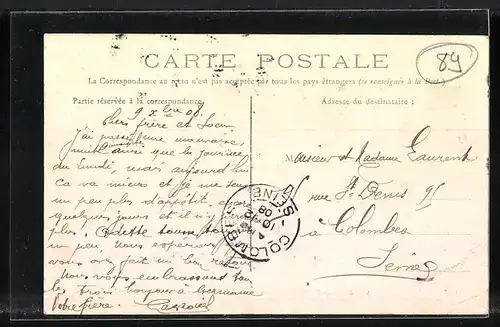 CARTE POSTALE
La Correspondance au recto n'est pas acceptée par tous les pays étrangers (se renseigner à la Poste.)
Partie réservée à la correspondance.
Adresse du destinataire :
89
9 Xbre 08.
Chers frère et Soeur
J'ai passé une mauvaise
nuit ainsi que la journée
du lundi, mais aujourd'hui
Ca va mieux et je me sens
un peu plus d'appétit, ayant
quelques jours et il n'y
plus, Odette tousse
un peu. Nous espérons
vous avez fait un bon retour
Nous vous embrassons tous
les trois toujours à
Votre frère.
Monsieur et Madame Laurent
rue St Denis 91
à Colombes
Seine
COLOMBES - SEINE
10
08